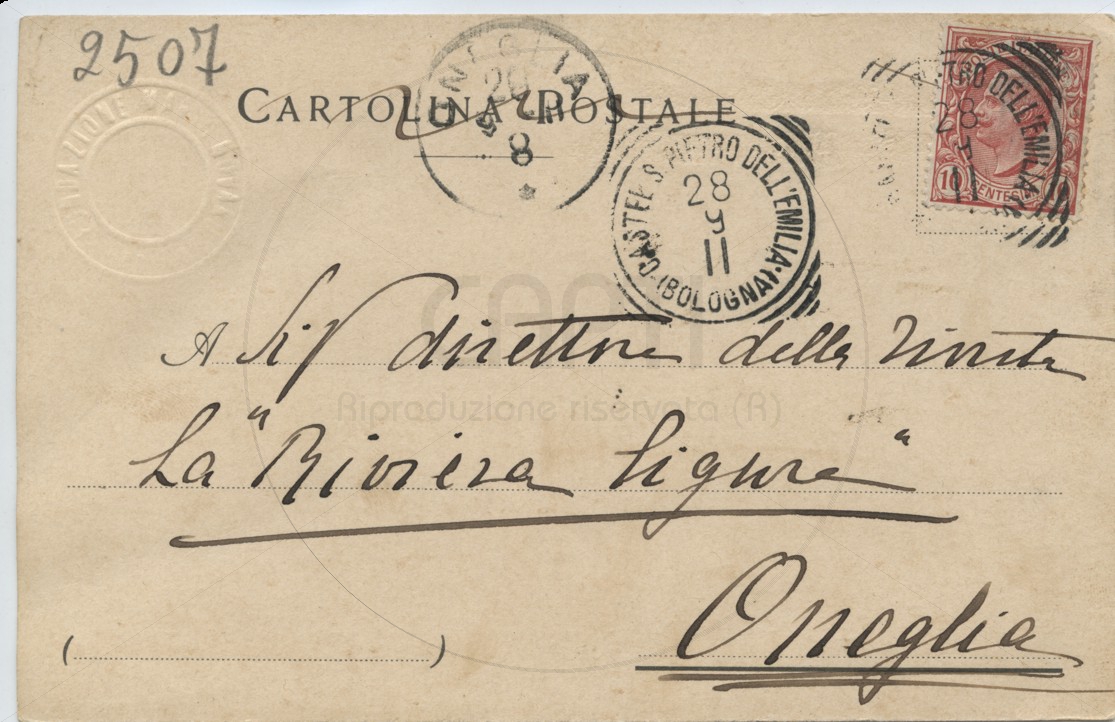 2507
CARTOLINA POSTALE
ONEGLIA
8
CASTEL S. PIETRO DELL'EMILIA
(BOLOGNA)
28
9
11
TRO DELL'EMILIA
28
9
11
10 CENTESIMI
A Sig direttore della rivista
La "Riviera ligure"
Oneglia
Riproduzione riservata (R)
( )